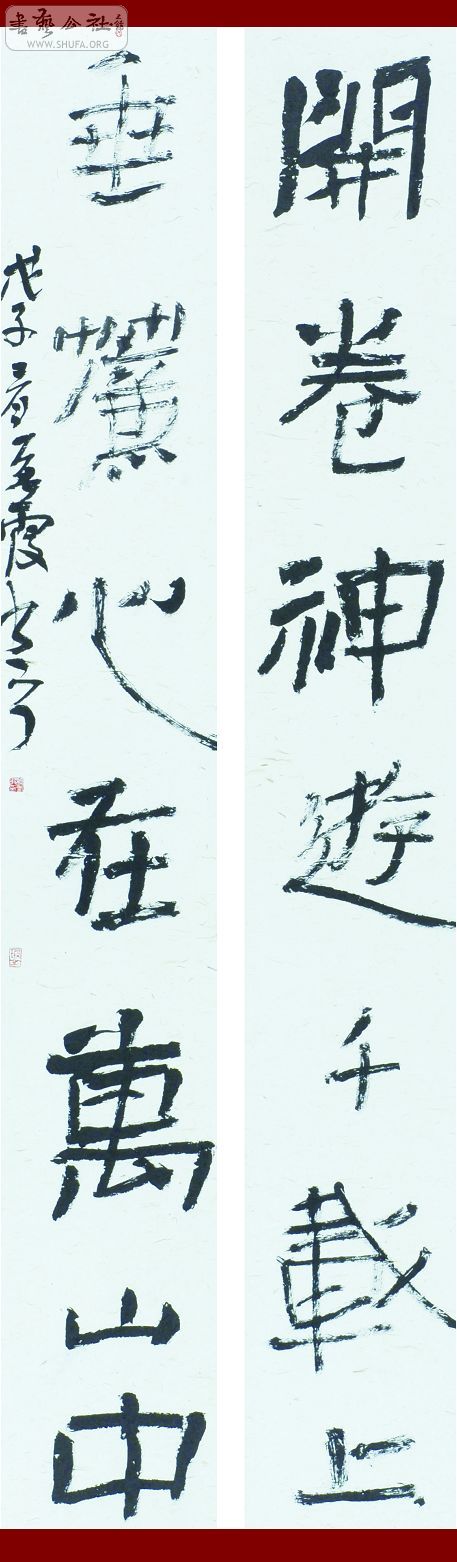 書藝公社
WWW.SHUFA.ORG
開卷神遊千載上
垂簾心在萬山中
戊子